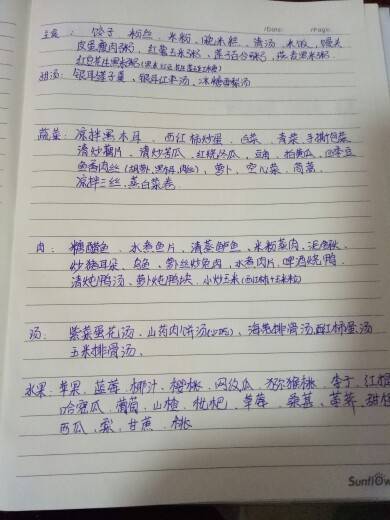 Date: Page:
主食: 饺子、粉丝、米粉、清汤、米饭、馒头
皮蛋瘦肉粥、红薯玉米粥、莲子百合粥、燕麦黑米粥
红豆花生黑米粥
甜汤: 银耳莲子羹、银耳红枣汤、冰糖雪梨汤
蔬菜: 凉拌黑木耳、西红柿炒蛋、白菜、青菜、手撕包菜
清炒藕片、清炒苦瓜、红烧冬瓜、豆角、拍黄瓜、四季豆
鱼香肉丝(胡萝卜、黑木耳、肉丝)、萝卜、空心菜、茼蒿
凉拌三丝、蒸白菜卷
肉: 糖醋鱼、水煮鱼片、清蒸鲈鱼、米粉蒸肉、泥鳅
炒猪耳朵、乌鱼、萝卜丝炒兔肉、水煮肉片、啤酒烧鸭
清炖鸭汤、萝卜炖鸭块、小炒玉米
汤: 紫菜蛋花汤、山药肉饼汤、海带排骨汤、西红柿蛋汤
玉米排骨汤、
水果: 苹果、蓝莓、椰汁、樱桃、网纹瓜、猕猴桃、李子、红
哈密瓜、葡萄、山楂、枇杷、草莓、桑葚、荸荠、甜
西瓜、梨、甘蔗、桃
Sunflow